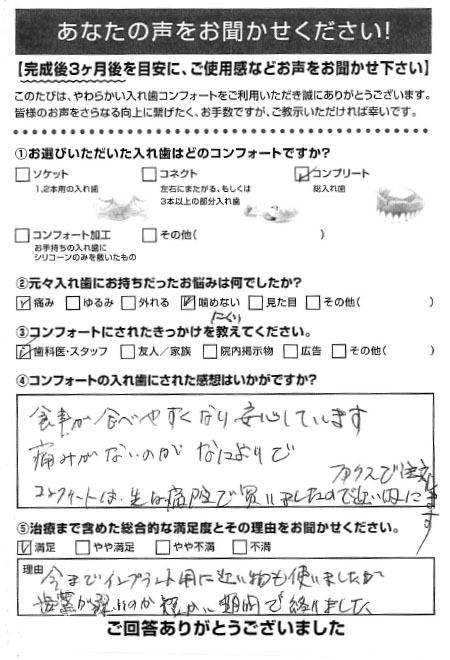 あなたの声をお聞かせください!
【完成後3ヶ月後を目安に、ご使用感などお声をお聞かせ下さい】
このたびは、やわらかい入れ歯コンフォートをご利用いただき誠にありがとうございます。
皆様のお声をさらなる向上に繋げたく、お手数ですが、ご教示いただければ幸いです。
①お選びいただいた入れ歯はどのコンフォートですか?
□ソケット □コネクト ☑コンプリート
1,2本用の入れ歯 左右にまたがる、もしくは 総入れ歯
3本以上の部分入れ歯
□コンフォート加工 □その他( )
お手持ちの入れ歯に
シリコーンのみを敷いたもの
②元々入れ歯にお持ちだったお悩みは何でしたか?
☑痛み □ゆるみ □外れる ☑噛めない □見た目 □その他( )
にくい
③コンフォートにされたきっかけを教えてください。
☑歯科医・スタッフ □友人/家族 □院内掲示物 □広告 □その他( )
④コンフォートの入れ歯にされた感想はいかがですか?
食事が食べやすくなり安心しています
痛みがないのがなによりで
ファクスで注文
は 病院で買いましたので近い内に
⑤治療まで含めた総合的な満足度とその理由をお聞かせください。
☑満足 □やや満足 □やや不満 □不満
理由
今までインプラント用に近い物も使いましたが
歯茎が悪いのか短かい期間で終りました
ご回答ありがとうございました